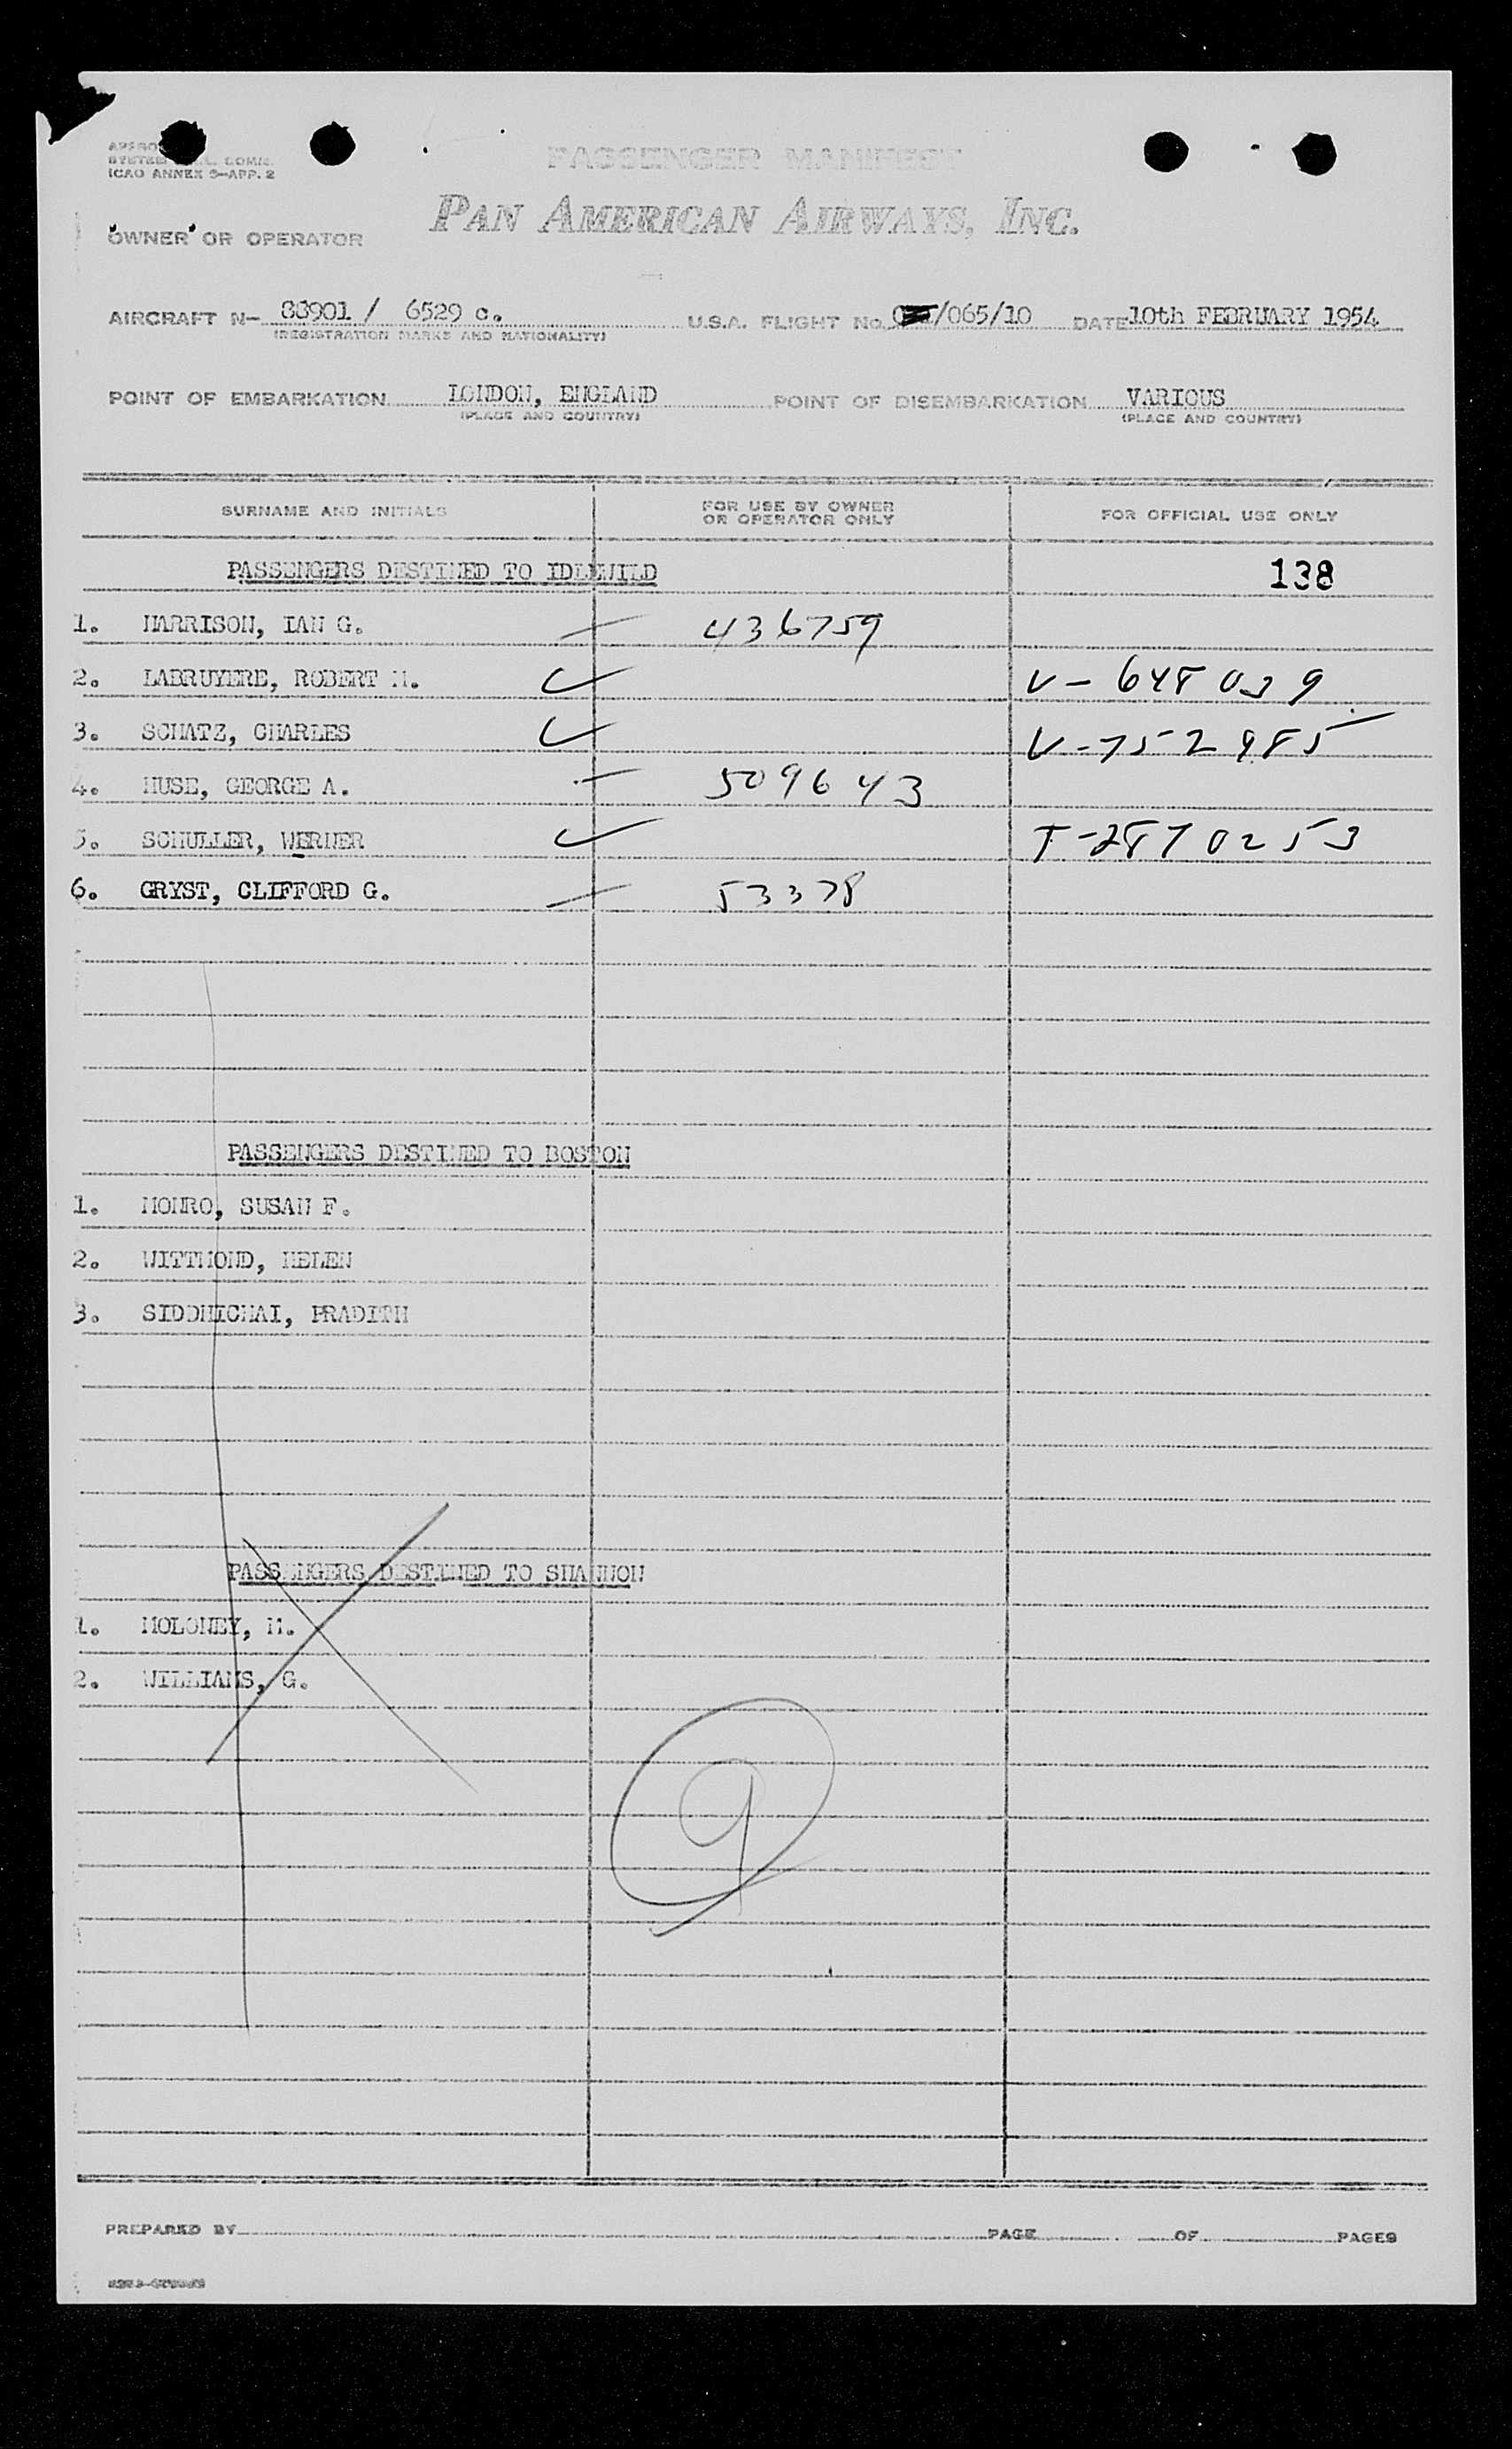 ICAO ANNEX 9—APP. 2
PASSENGER MANIFEST
OWNER OR OPERATOR PAN AMERICAN AIRWAYS, INC.
AIRCRAFT N- 88901 / 6529 c. U.S.A. FLIGHT No. /065/10 DATE 10th FEBRUARY 1954
(REGISTRATION MARKS AND NATIONALITY)
POINT OF EMBARKATION LONDON, ENGLAND POINT OF DISEMBARKATION VARIOUS
(PLACE AND COUNTRY) (PLACE AND COUNTRY)
SURNAME AND INITIALS FOR USE BY OWNER OR OPERATOR ONLY FOR OFFICIAL USE ONLY
PASSENGERS DESTINED TO IDLEWILD 138
1. HARRISON, IAN G. 436759
2. LABRUYERE, ROBERT M. V-648039
3. SCHATZ, CHARLES V-752985
4. HUSE, GEORGE A. 509643
5. SCHULLER, WERNER T-2870253
6. GRYST, CLIFFORD G. 53378
PASSENGERS DESTINED TO BOSTON
1. MONRO, SUSAN F.
2. WITTMOND, HELEN
3. SIDDHICHAI, PRADITH
PASSENGERS DESTINED TO SHANNON
1. MOLONEY, M.
2. WILLIAMS, G.
9
PREPARED BY PAGE OF PAGES